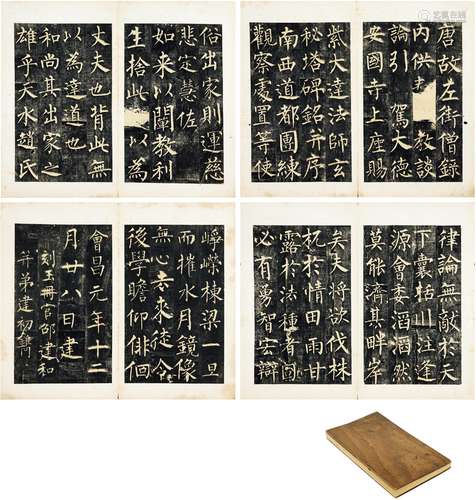 唐故左街僧錄
內供奉教談
論引 駕大德
安國寺上座賜
紫大達法師玄
秘塔碑銘并序
南西道都團練
觀察處置等使
俗出家則運慈
悲定慧佐
如來以闡教利
生捨此以為
丈夫也背此無
以為達道也
和尚其出家之
雄乎天水趙氏
律論無敵於天
下囊括川注逢
源會委滔滔然
莫能濟其畔岸
矣夫將欲伐株
杌於情田雨甘
露於法種者固
必有勇智宏辯
崢嶸棟梁一旦
而摧水月鏡像
無心去來徒令
後學瞻仰徘徊
會昌元年十二
月廿八日建
刻玉冊官邵建和
并弟建初鐫